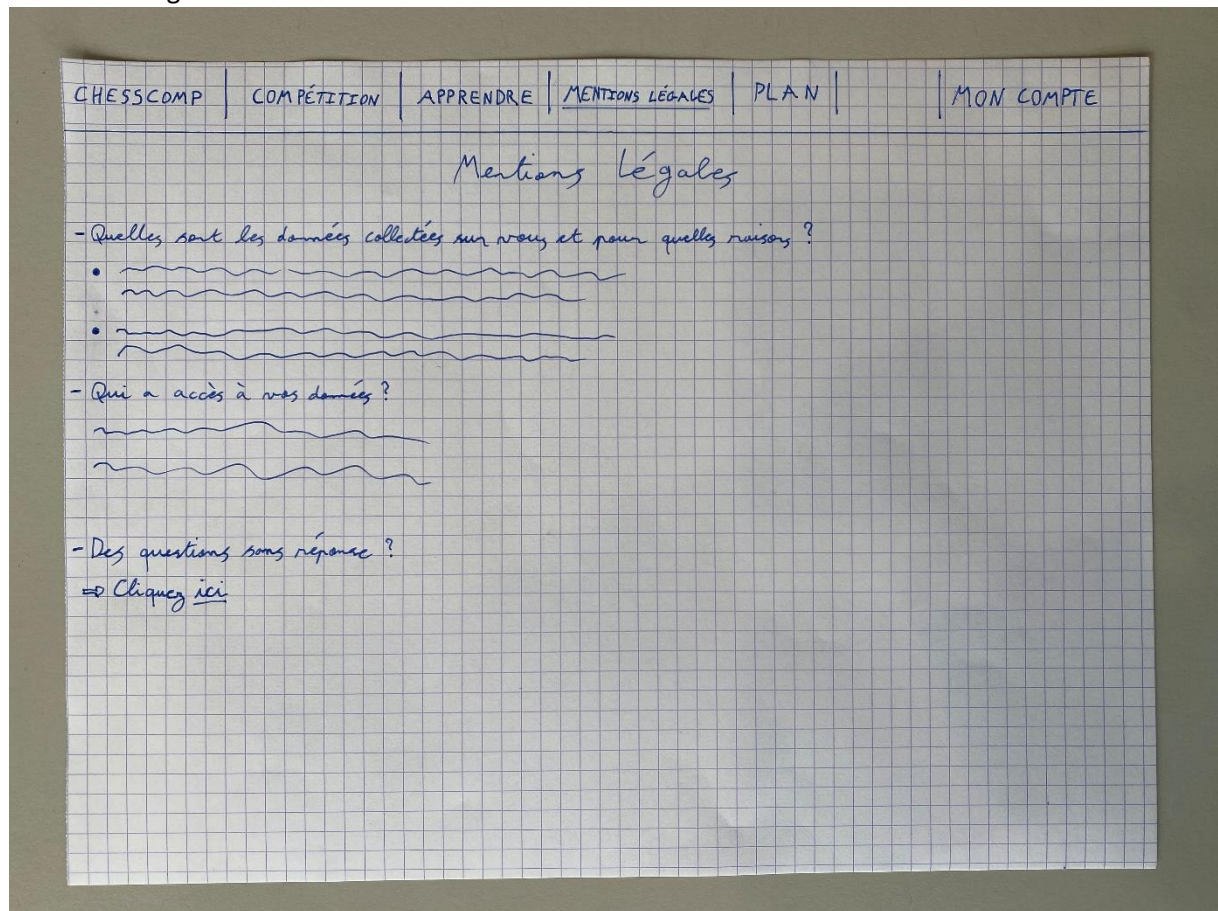 CHESSCOMP | COMPÉTITION | APPRENDRE | MENTIONS LÉGALES | PLAN | | MON COMPTE
Mentions Légales
- Quelles sont les données collectées sur vous et pour quelles raisons ?
- Qui a accès à vos données ?
- Des questions sans réponse ?
⇒ Cliquez ici